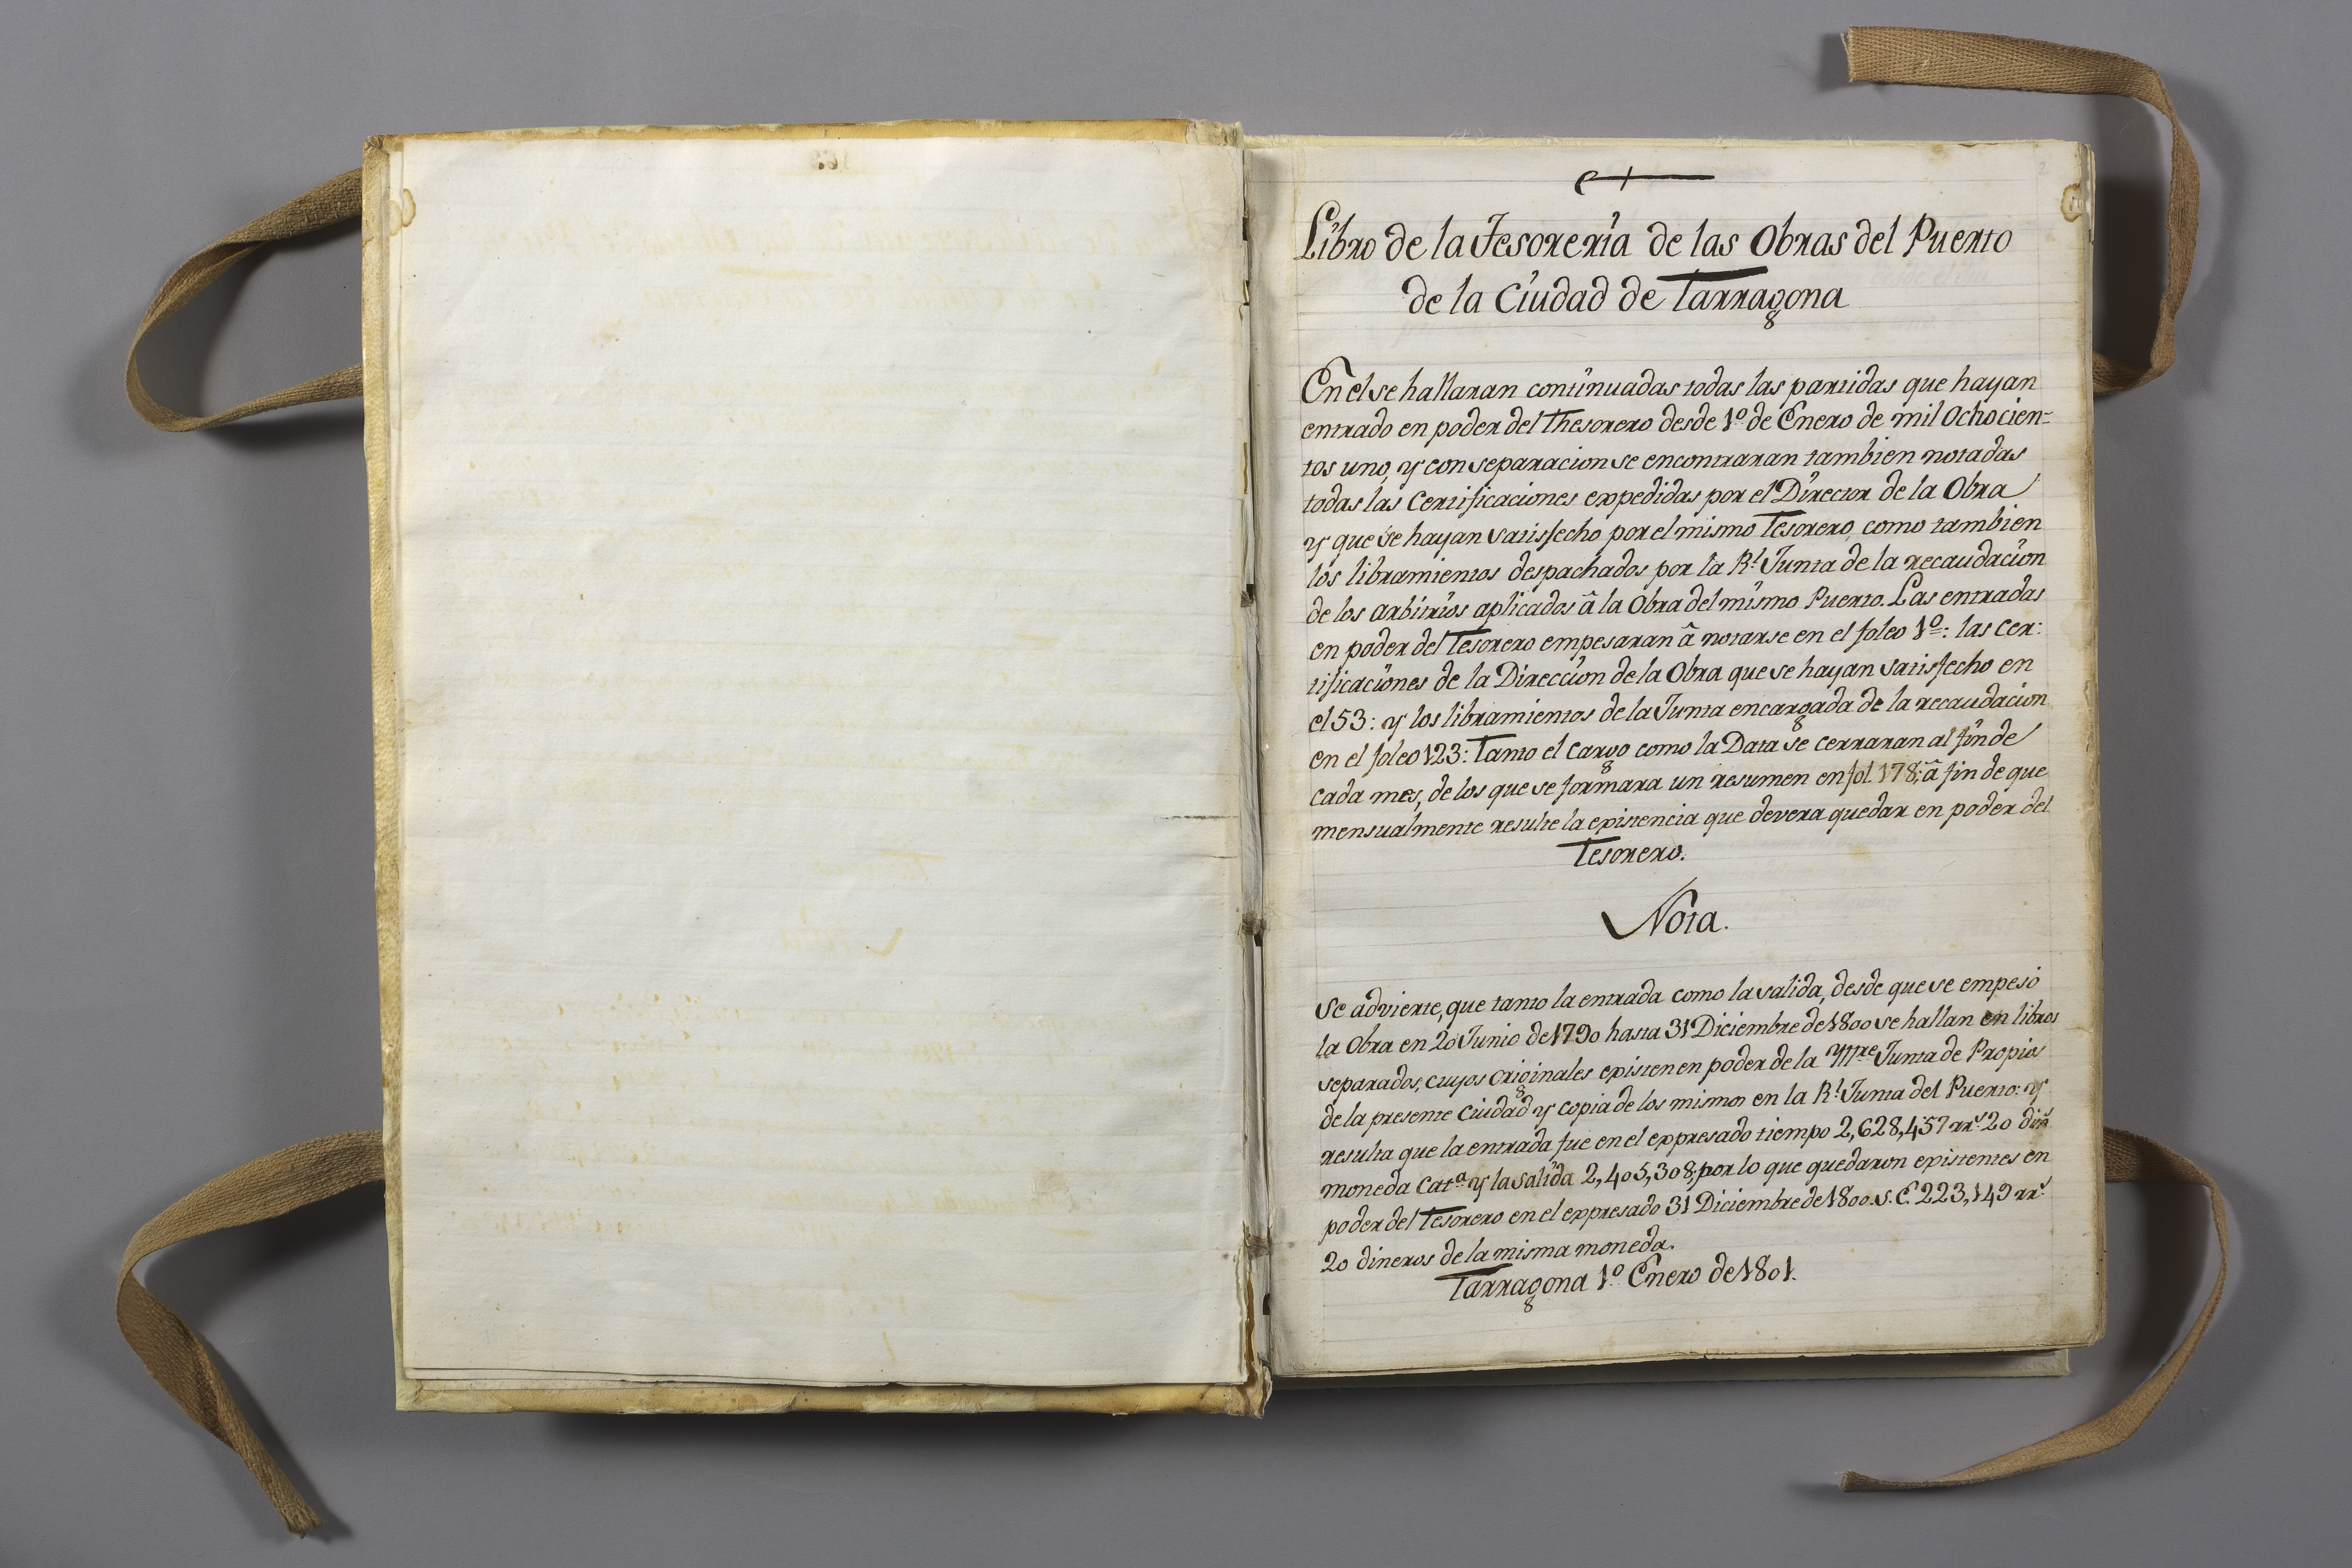 Libro de la Tesoreria de las Obras del Puerto
de la Ciudad de Tarragona
En el se hallaran continuadas todas las partidas que hayan
entrado en poder del Thesorero desde 1º de Enero de mil Ochocien-
tos uno, y con separacion se encontraran tambien notadas
todas las Certificaciones expedidas por el Director de la Obra
y que se hayan satisfecho por el mismo Tesorero, como tambien
los libramientos despachados por la Rl. Junta de la recaudacion
de los arbitrios aplicados â la Obra del mismo Puerto. Las entradas
en poder del Tesorero empesaran â notarse en el foleo 1º: las Cer:
tificaciones de la Direccion de la Obra que se hayan satisfecho en
el 53: y los libramientos de la Junta encargada de la recaudacion
en el foleo 123: Tanto el cargo como la Data se cerraran al fin de
cada mes, de los que se formara un resumen en fol. 178; â fin de que
mensualmente resulte la existencia que devera quedar en poder del
Tesorero.
Nota.
Se advierte, que tanto la entrada como la salida, desde que se empesó
la Obra en 20 Junio de 1790 hasta 31 Diciembre de 1800 se hallan en libros
separados, cuyos originales existen en poder de la Yltre Junta de Propios
de la presente Ciudad y copia de los mismos en la Rl. Junta del Puerto: y
resulta que la entrada fue en el expresado tiempo 2,628,457 rrs. 20 dins
moneda Cata. y la salida 2,405,308; por lo que quedaron existentes en
poder del Tesorero en el expresado 31 Diciembre de 1800. S. E. 223,149 rrs.
20 dineros de la misma moneda.
Tarragona 1º Enero de 1801.